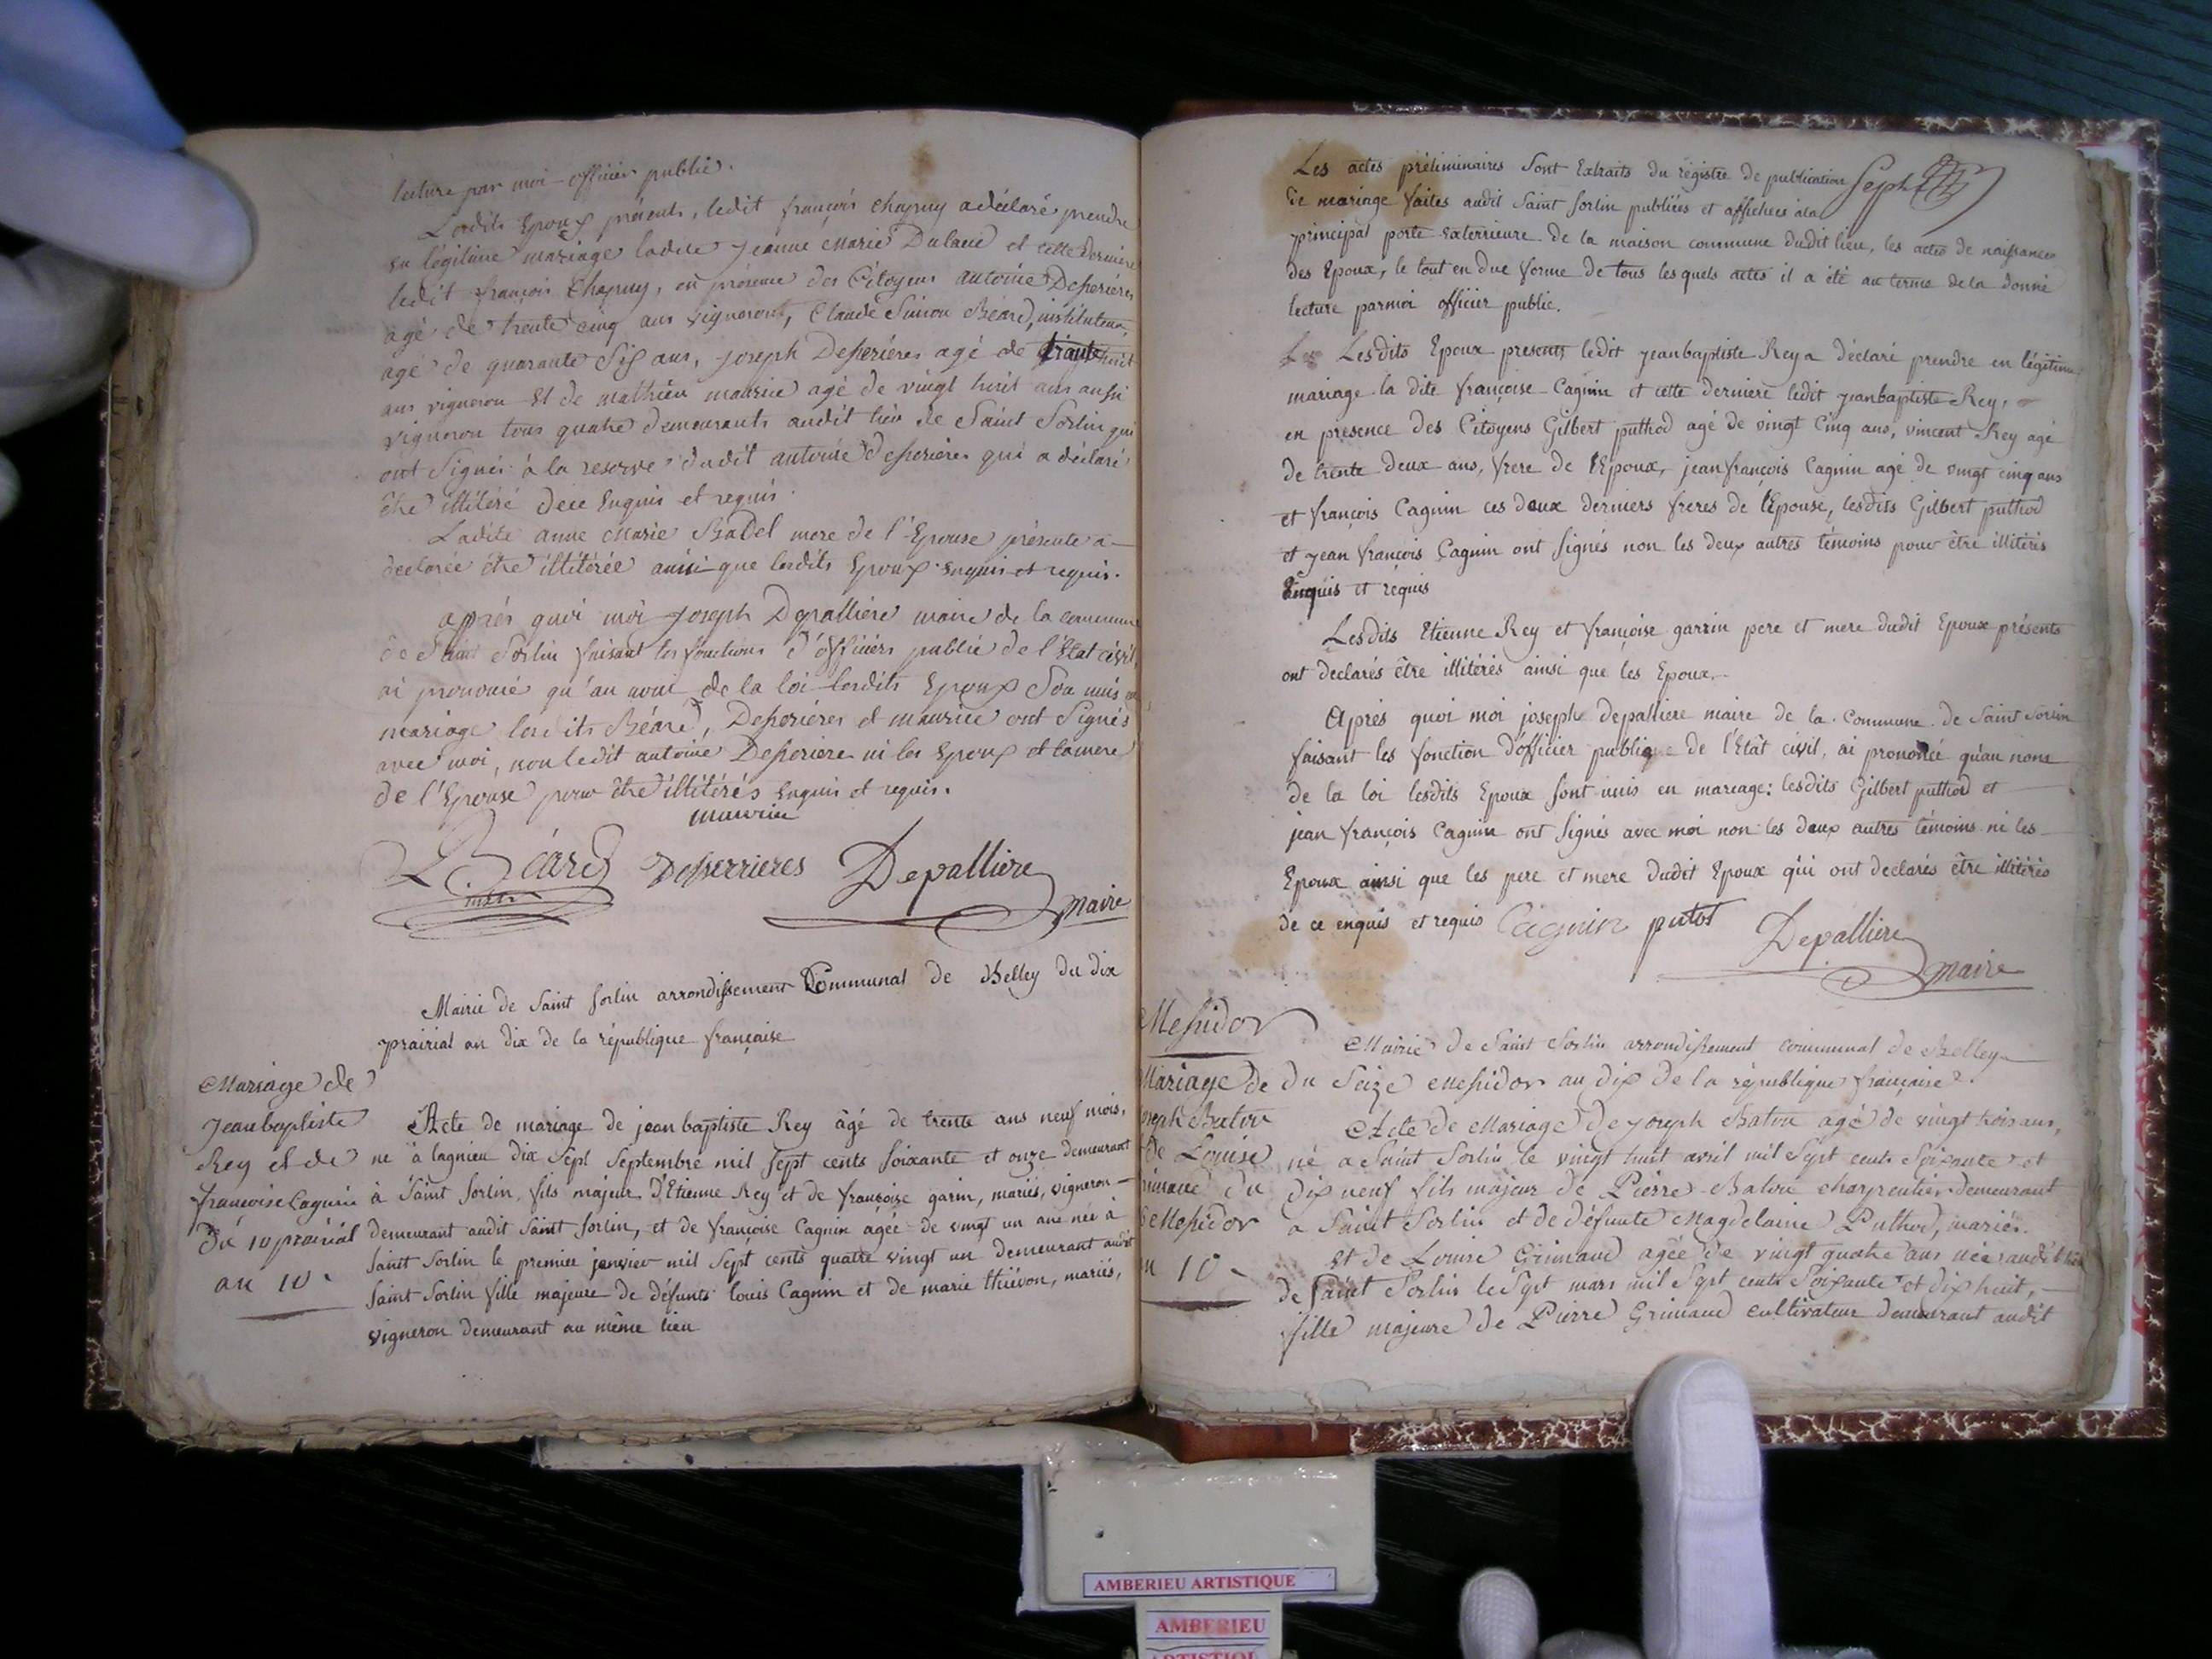 lecture par moi officier public.
Lesdits Epoux présents, ledit françois Chapuy a déclaré prendre
en légitime mariage ladite Jeanne Marie Dulane et cette derniere
ledit françois Chapuy, en présence des Citoyens antoine Desperiéres
agé de trente cinq ans vigneront, Claude Simon Béard, instituteur,
agé de quarante Six ans, Joseph Desperiéres agé de trante huit
ans vigneron et de mathieu maurice agé de vingt huit ans aussi
vigneron tous quatre demeurants audit lieu de Saint Sorlin qui
ont Signés à la reserve dudit antoine Desperieres qui a déclaré
être illitéré dece Enquis et requis.
Ladite anne Marie Badel mere de l'Epouse présente a
declarée être illitérée ainsi que lesdits Epoux enquis et requis.
après quoi moi Joseph Depalliére maire de la commune
de Saint Sorlin faisant les fonctions d'officiers public de l'Etat civil,
ai prononcé qu'au nom de la loi lesdits Epoux Son unis en
mariage lesdits Béard, Desperiéres et maurice ont Signés
avec moi, non ledit antoine Desperiere ni les Epoux et la mere
de l'Epouse pour être illitérés enquis et requis.
maurice
Béard Desperrieres Depalliere
maire
Mairie de Saint Sorlin arrondissement Communal de Belley du dix
prairial an dix de la république française
Mariage de
Jean baptiste
Rey et de
françoise Cagnin
du 10 prairial
an 10.
Acte de mariage de jean baptiste Rey âgé de trente ans neuf mois,
né à lagnieu dix Sept Septembre mil Sept cents Soixante et onze demeurant
à Saint Sorlin, fils majeur d'Etienne Rey et de françoise garin, mariés, vigneron
demeurant audit Saint Sorlin, et de françoise Cagnin agée de vingt un ans née à
Saint Sorlin le premier janvier mil Sept cents quatre vingt un demeurant audit
Saint Sorlin fille majeure de défunts louis Cagnin et de marie thiévon, mariés,
vigneron demeurant au même lieu
Les actes préliminaires Sont Extraits du régistre de publication
de mariage faites audit Saint Sorlin publiées et affichées à la
principal porte Exterrieure de la maison commune dudit lieu, les actes de naissances
des Epoux, le tout en due forme de tous lesquels actes il a été au terme de la donné
lecture par moi officier public.
Lesdits Epoux presents ledit jean baptiste Rey a déclaré prendre en légitime
mariage la dite françoise Cagnin et cette derniere ledit jean baptiste Rey,
en presence des Citoyens Gilbert puthod agé de vingt Cinq ans, vincent Rey agé
de trente deux ans, frere de l'Epoux, jean françois Cagnin agé de vingt cinq ans
et françois Cagnin ces deux derniers freres de l'Epouse, lesdits Gilbert puthod
et jean françois Cagnin ont Signés non les deux autres témoins pour être illitérés
Enquis et requis
Lesdits Etienne Rey et françoise garrin pere et mere dudit Epoux présents
ont declarés être illitérés ainsi que les Epoux.
Après quoi moi joseph depalliere maire de la Commune de Saint Sorlin
faisant les fonction d'officier publique de l'Etât civil, ai prononcé qu'au nom
de la loi lesdits Epoux Sont unis en mariage: lesdits Gilbert puthod et
jean françois Cagnin ont Signés avec moi non les deux autres témoins ni les
Epoux ainsi que les pere et mere dudit Epoux qui ont declarés être illitérés
de ce enquis et requis Cagnin putot Depalliere
maire
Messidor
Mairie de Saint Sorlin arrondissement communal de Belley
du Seize Messidor an dix de la république française.
Mariage de
oseph Baton
de Louise
rimaud du
6 Messidor
n 10
Acte de Mariage de Joseph Baton agé de vingt trois ans,
né a Saint Sorlin le vingt huit avril mil Sept cents Soixante et
dix neuf fils majeur de Pierre Baton charpentier demeurant
a Saint Sorlin et de défunte Magdelaine Puthod, mariés.
et de Louise Grimaud agée de vingt quatre ans née audit lieu
de Saint Sorlin le Sept mars mil Sept cents Soixante et dix huit,
fille majeure de Pierre Grimaud cultivateur demeurant audit
AMBERIEU ARTISTIQUE
AMBERIEU
ARTISTIQUE